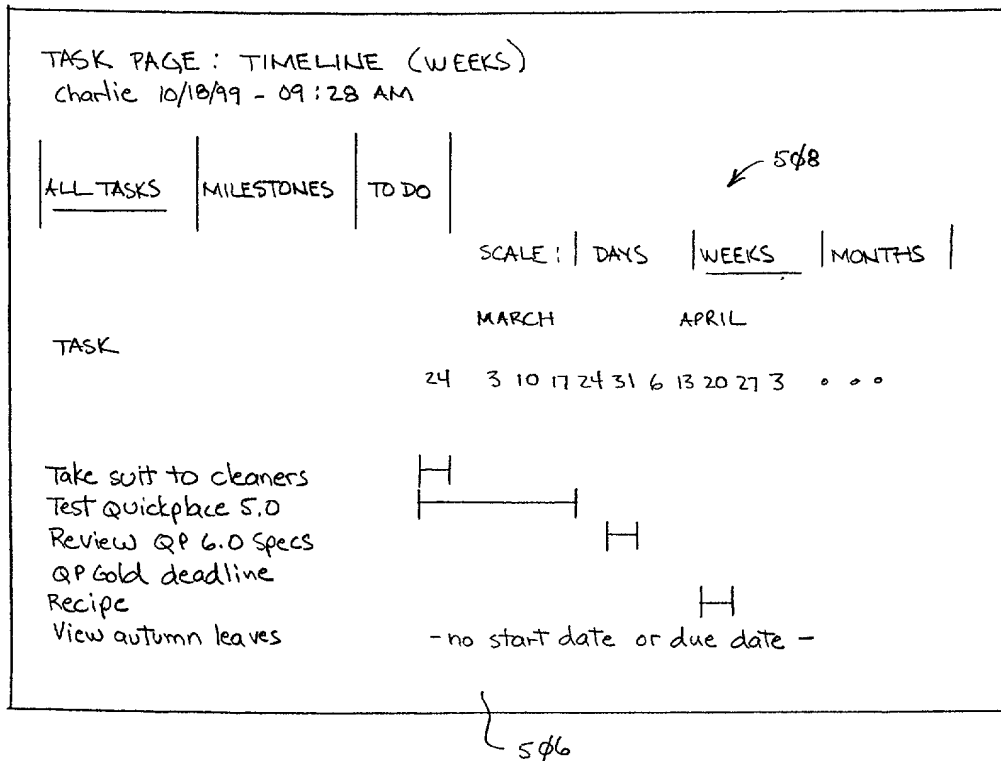 TASK PAGE: TIMELINE (WEEKS)
Charlie 10/18/99 - 09:28 AM
508
ALL TASKS MILESTONES TO DO
SCALE: DAYS WEEKS MONTHS
MARCH APRIL
TASK
24 3 10 17 24 31 6 13 20 27 3
Take suit to cleaners
Test Quickplace 5.0
Review QP 6.0 Specs
QP Gold deadline
Recipe
View autumn leaves - no start date or due date -
506